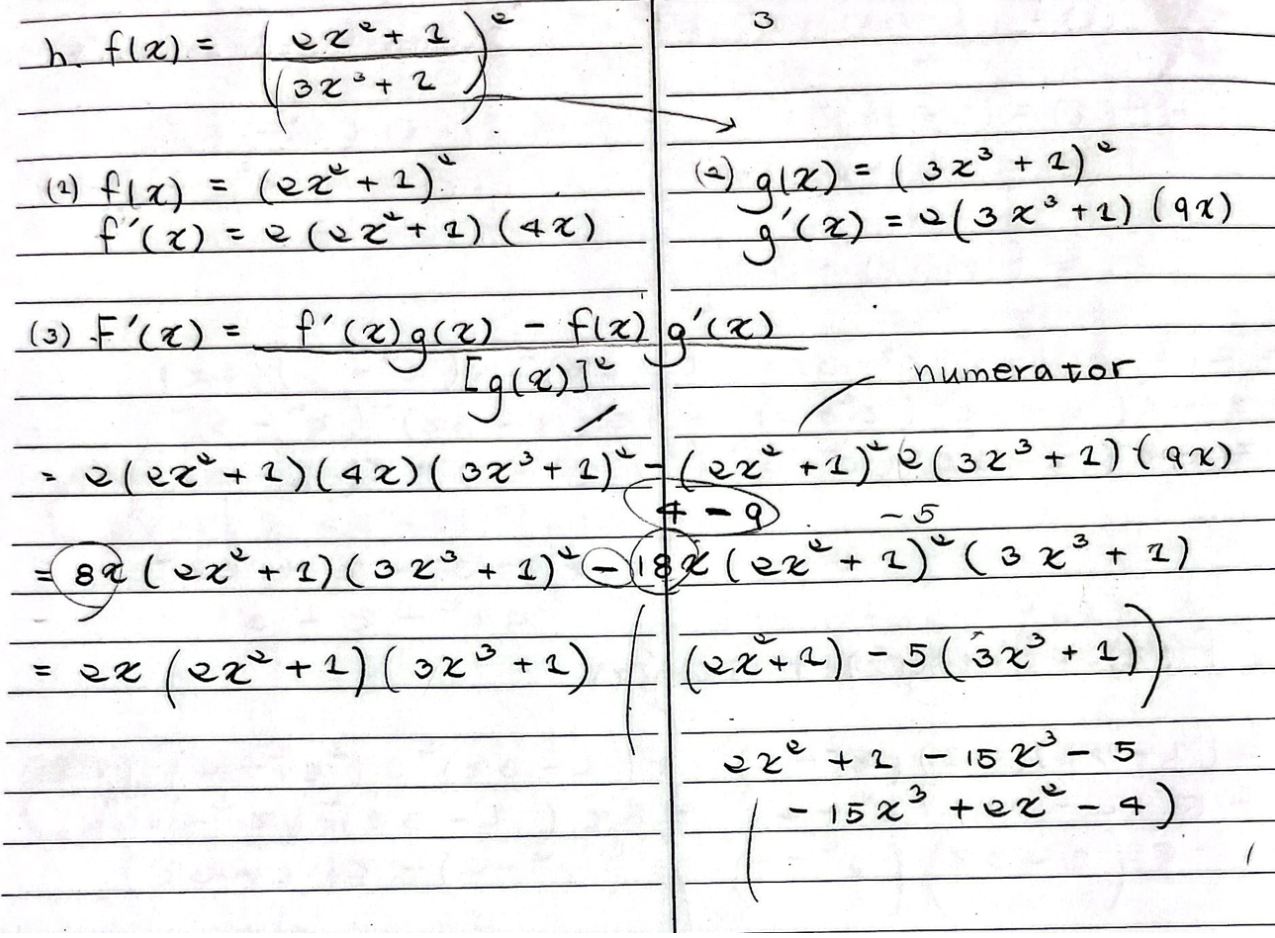 3
h. f(x) = (2x² + 1 / 3x³ + 1)²
(1) f(x) = (2x² + 1)²
f'(x) = 2(2x² + 1)(4x)
(2) g(x) = (3x³ + 1)²
g'(x) = 2(3x³ + 1)(9x)
(3) F'(x) = f'(x)g(x) - f(x)g'(x)
[g(x)]²
numerator
= 2(2x² + 1)(4x)(3x³ + 1)² - (2x² + 1)² 2(3x³ + 1)(9x)
4 - 9 -5
= 8x(2x² + 1)(3x³ + 1)² - 18x(2x² + 1)²(3x³ + 1)
= 2x(2x² + 1)(3x³ + 1)((2x² + 1) - 5(3x³ + 1))
2x² + 1 - 15x³ - 5
(-15x³ + 2x² - 4)